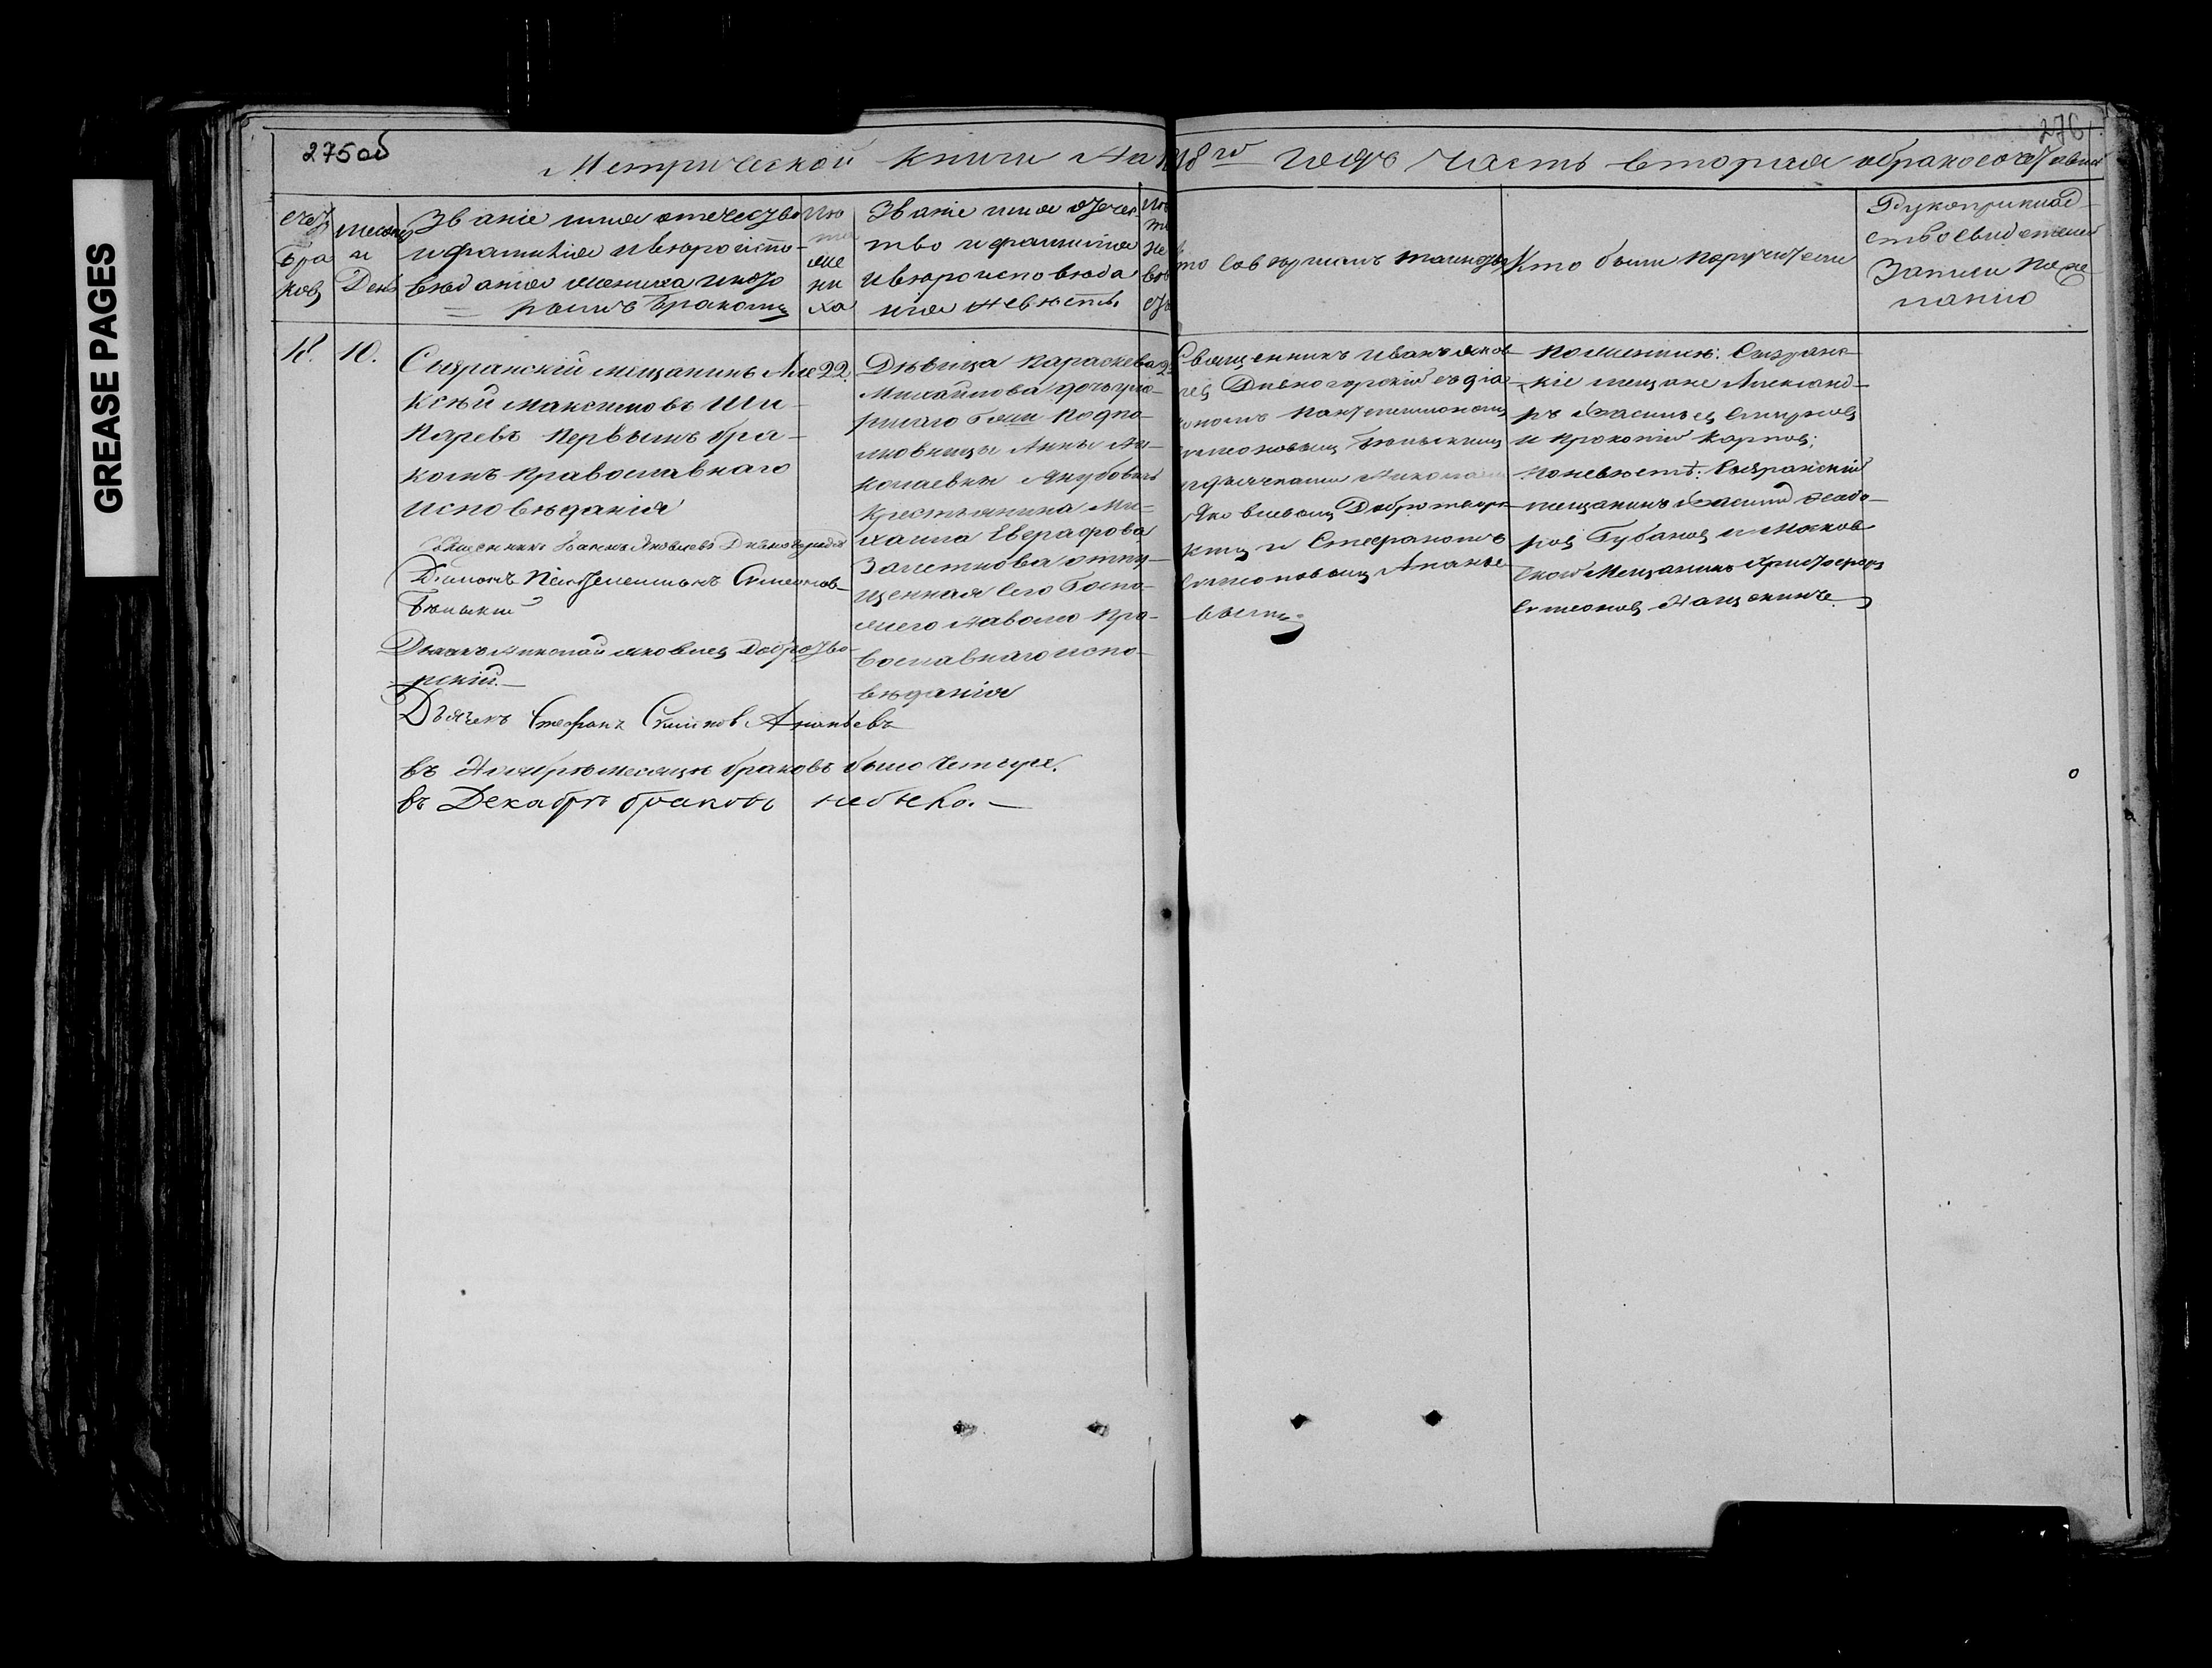 GREASE PAGES
275об
276
Метрической книги на 18 го годъ часть вторая о бракосочетавши
счетъ
бра
ковъ
месяцъ
и
День
Званіе имя отечество
и фамилія и вѣроиспо-
вѣданія жениха и кото
рымъ бракомъ
лѣ
та
же
ни
ха
Званіе имя отечес
тво и фамилія
и вѣроисповѣда
нія невѣсты
лѣ
та
не
вѣ
сты
то совершалъ таинство
Кто были поручители
Рукоприклад-
ство свидетелей
Записи по же
ланію
10.
Сызранскій мещанинъ Але
ксѣй Максимовъ Ши-
паревъ первымъ бра-
комъ православнаго
исповѣданія
22.
Дѣвица Параскева
Михайлова дочь уме-
ршаго Подпо-
лковницы Анны Ни-
колаевны Якубовичъ
крестьянина Ми-
хаила Евграфова
отпу-
щенная его Госпо-
жею на волю пра-
вославнаго испо-
вѣданія
Священникъ Иванъ Яков-
лев Дивногорскій съ діа
кономъ Пантелеимономъ
Симеоновымъ
и дьячками Николаемъ
Яковлевымъ Добротворс
кимъ и Стефаномъ
Симеоновымъ Ананье
вымъ
По женихѣ: Сызранс-
кіе мещане Александ-
ръ Васильевъ Смирновъ
и Прокопій Карповъ;
По невѣстѣ: Сызранскій
мещанинъ Василій Феодо-
ровъ Губановъ и Москов
ской Мещанинъ Христофоръ
Симеоновъ
Священникъ Іоаннъ Яковлевъ Дивногорскій
Діаконъ Пантелеимонъ Симеоновъ
Дьячекъ Николай Яковлевъ Доброзво-
рскій.
Дьячекъ Стефанъ Симеонов Ананьевъ
въ Ноябрѣ месяцѣ браковъ было четыре.
въ Декабрѣ браковъ небыло.